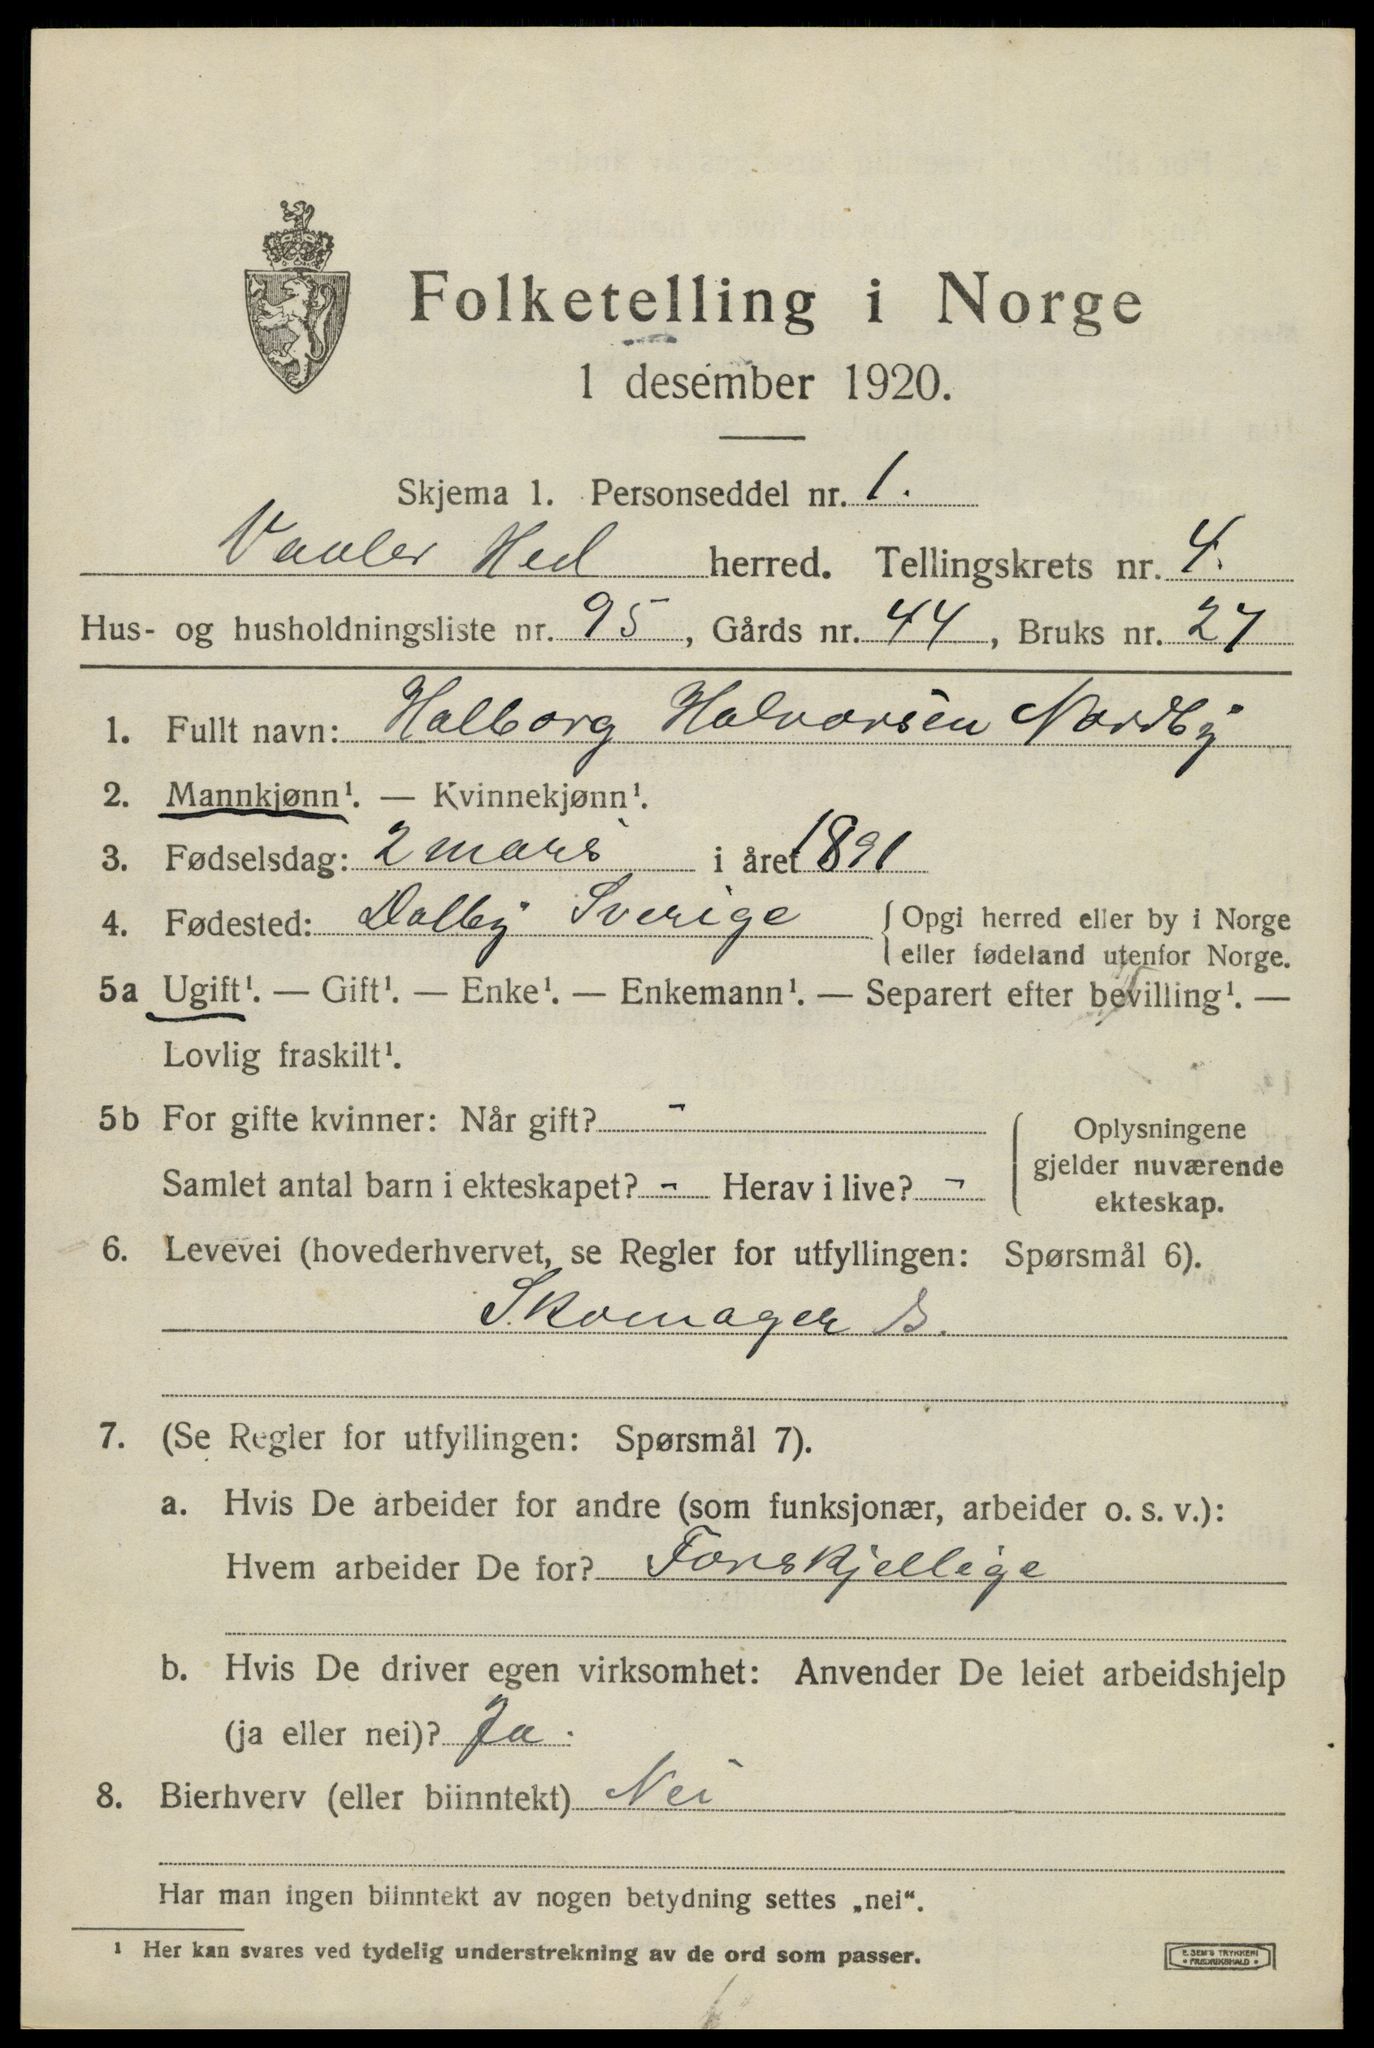 Folketelling i Norge
1 desember 1920.
Skjema 1. Personseddel nr. 1.
Vaaler Hed herred. Tellingskrets nr. 4.
Hus- og husholdningsliste nr. 95, Gårds nr. 44, Bruks nr. 27
1. Fullt navn: Halborg Halvorsen Nordby
2. Mannkjønn¹. — Kvinnekjønn¹.
3. Fødselsdag: 2 mars i året 1891
4. Fødested: Dalby Sverige {Opgi herred eller by i Norge
eller fødeland utenfor Norge.
5a Ugift¹. — Gift¹. — Enke¹. — Enkemann¹. — Separert efter bevilling¹. —
Lovlig fraskilt¹.
5b For gifte kvinner: Når gift? -
Samlet antal barn i ekteskapet? - Herav i live? -
Oplysningene
gjelder nuværende
ekteskap.
6. Levevei (hovederhvervet, se Regler for utfyllingen: Spørsmål 6).
Skomager S.
7. (Se Regler for utfyllingen: Spørsmål 7).
a. Hvis De arbeider for andre (som funksjonær, arbeider o. s. v.):
Hvem arbeider De for? Forskjellige
b. Hvis De driver egen virksomhet: Anvender De leiet arbeidshjelp
(ja eller nei)? Ja.
8. Bierhverv (eller biinntekt) Nei
Har man ingen biinntekt av nogen betydning settes „nei“.
¹ Her kan svares ved tydelig understrekning av de ord som passer.
E. SEM'S TRYKKERI
FREDRIKSHALD